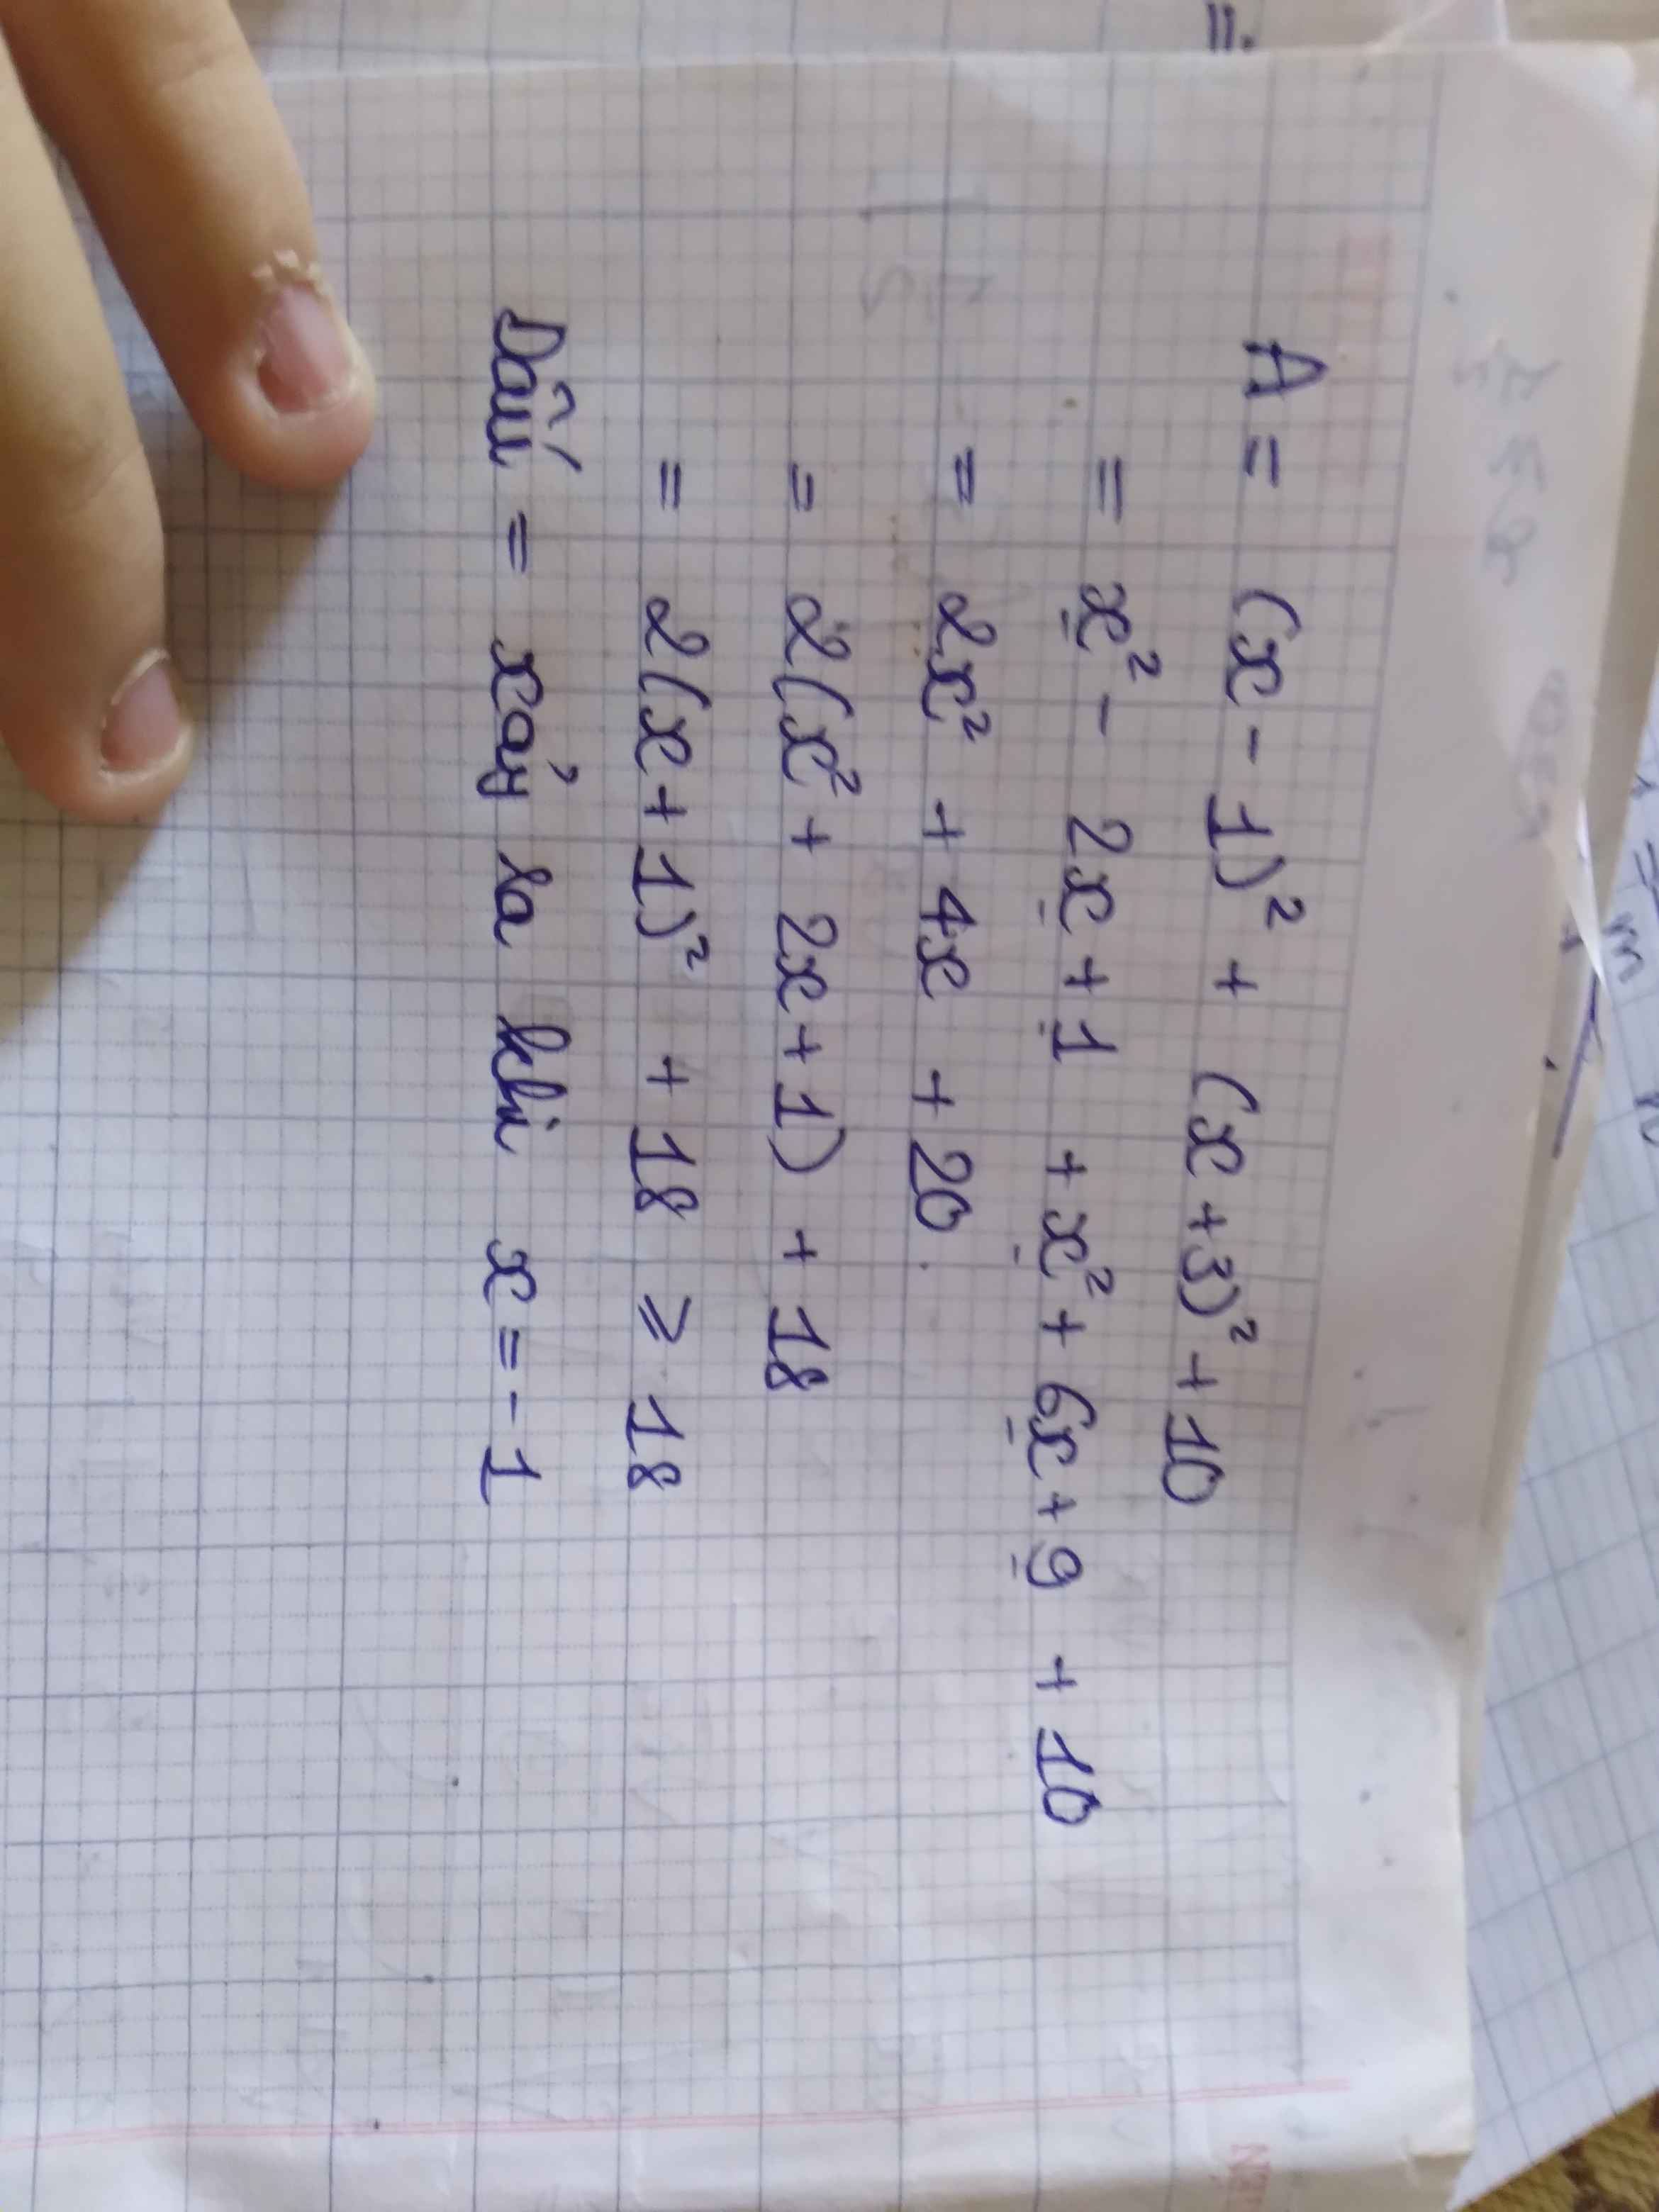 A = (x - 1)² + (x + 3)² + 10
= x² - 2x + 1 + x² + 6x + 9 + 10
= 2x² + 4x + 20
= 2(x² + 2x + 1) + 18
= 2(x + 1)² + 18 ⩾ 18
Dấu = xảy ra khi x = -1